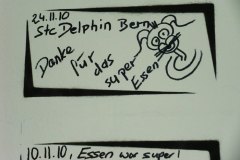 24.11.10
Stc Delphin Bern
Danke für das
super
Essen
10.11.10, Essen war super!